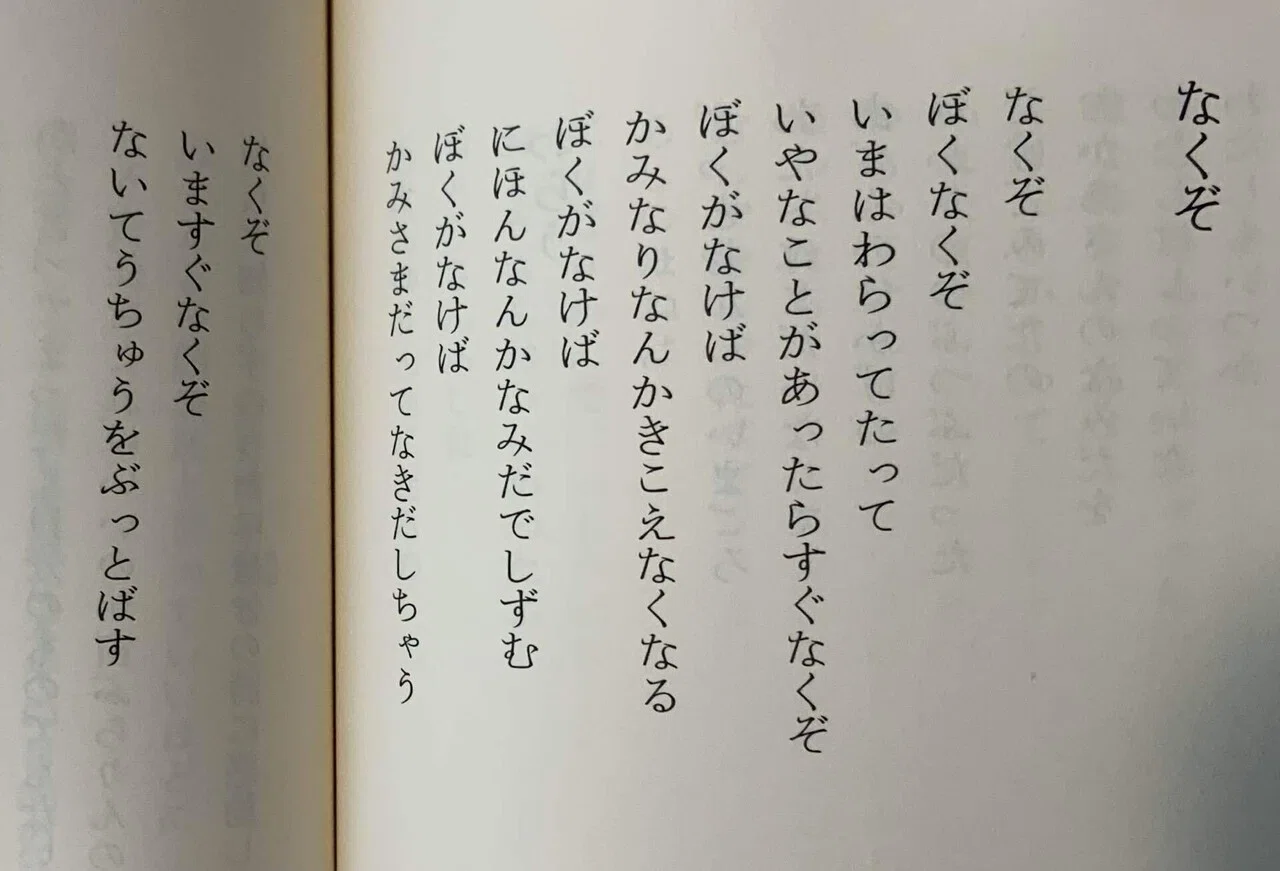 なくぞ
なくぞ
ぼくなくぞ
いまはわらってたって
いやなことがあったらすぐなくぞ
ぼくがなけば
かみなりなんかきこえなくなる
ぼくがなけば
にほんなんかなみだでしずむ
ぼくがなけば
かみさまだってなきだしちゃう
なくぞ
いますぐなくぞ
ないてうちゅうをぶっとばす